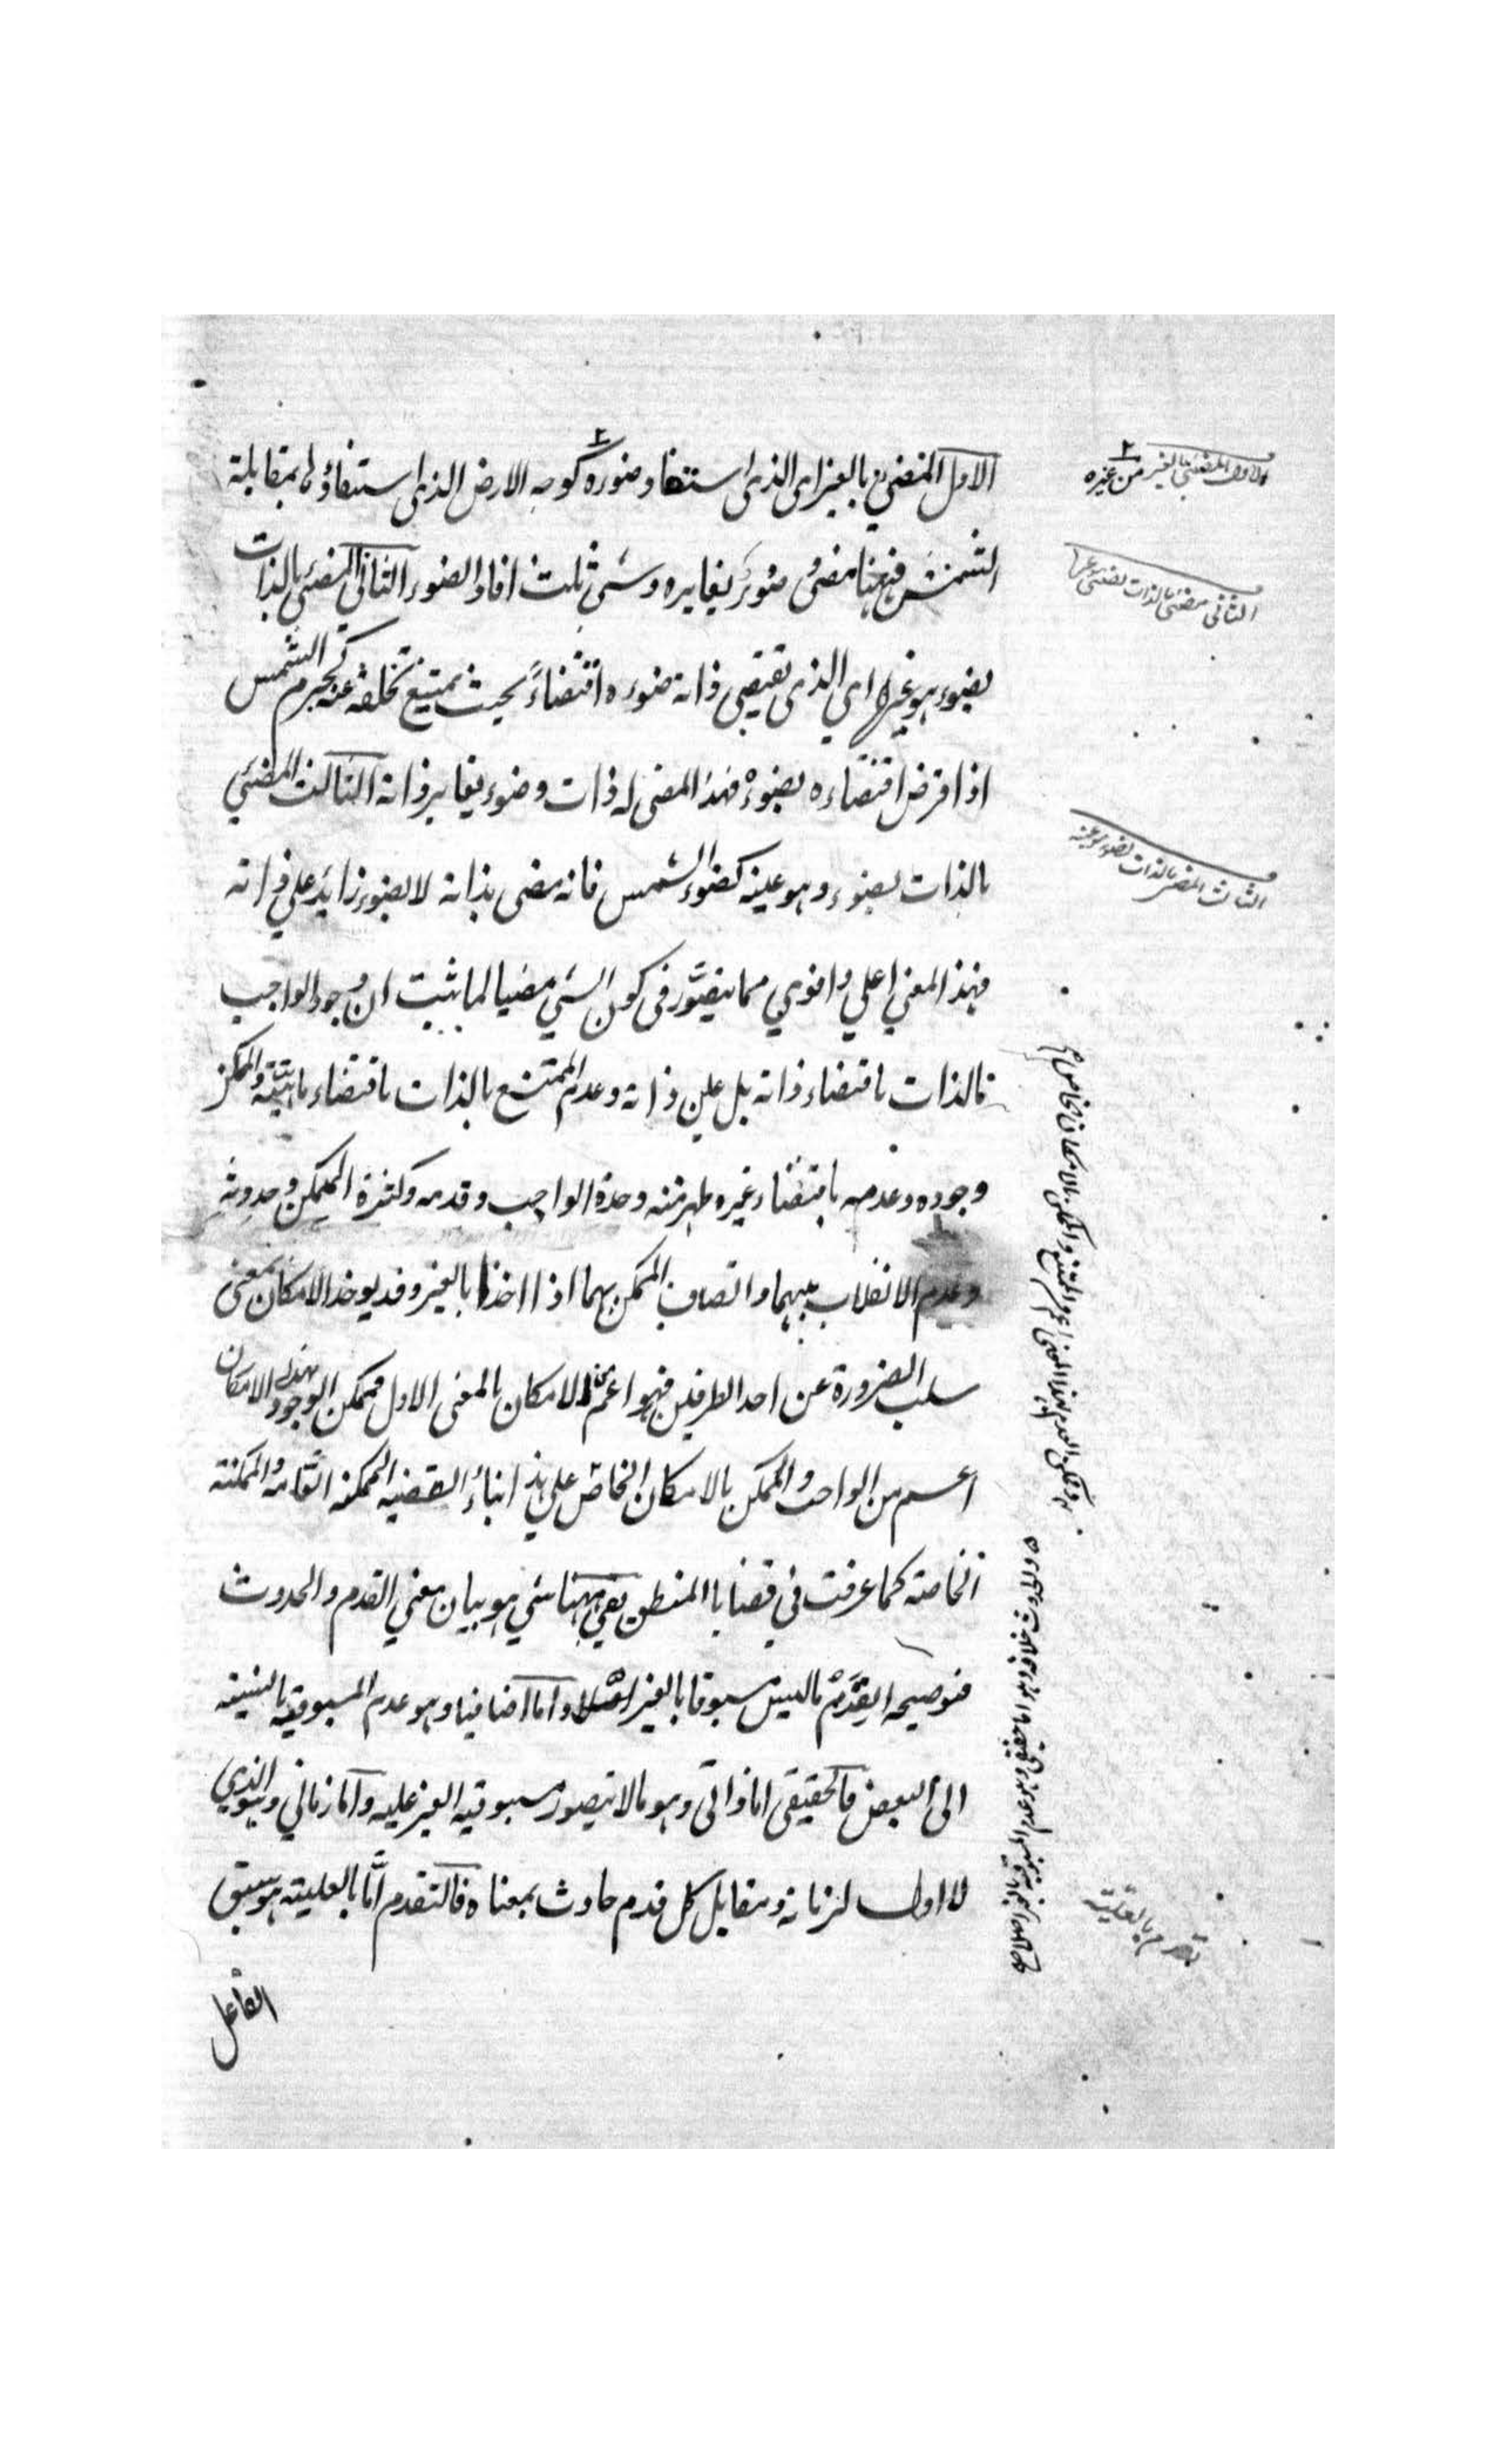 الاول المضئ بالغير اى الذى استفاد ضوءه كوجه الارض الذى استضاؤ لمقابلة
الشمس فههنا مضئ وضوء يغايره وشئ ثالث افاد الضوء الثانى المضئى بالذات
بضوء هو غيرها اى الذى تقتضى ذاته ضوءه اقتضاءً بحيث يمتنع تخلفه عنه كجرم الشمس
اذا فرض اقتضاءه بضوءه فهذا المضى له ذات وضوء يغاير ذاته الثالث المضئى
بالذات بضوء وهو عينه كضوء الشمس فانه مضى بذاته لا بضوء زايد على ذاته
فهذا المعنى اعلى واقوى مما يتصور فى كون الشئ مضيا لما ثبت ان وجود الواجب
بالذات باقتضاء ذاته بل عين ذاته وعدم الممتنع بالذات باقتضاء ماهيته والممكن
وجوده وعدمه باقتضاء غيره ظهر منه وحدة الواجب وقدمه وكثرة الممكن وحدوثه
وعدم الانقلاب بينهما واتصاف الممكن بهما اذا اخذا بالغير وقد يوخذ الامكان بمعنى
سلب الضرورة عن احد الطرفين فهو اعم من الامكان بالمعنى الاول فممكن الوجود بهذا الامكان
اعم من الواجب والممكن بالامكان الخاص على هذا بناءُ القضيه الممكنه العامه والممكنة
الخاصة كما عرفت فى قضايا المنطق بقى ههنا شئ هو بيان معنى القدم والحدوث
فتوضيحه القِدَمْ ما ليس مسبوقا بالغير واما اضافيا وهو عدم المسبوقيه بالنسبة
الى البعض فالحقيقى اما ذاتى وهو ما لا يتصور مسبوقيه الغير عليه واما زمانى وهو الذى
لا اول لزمانه ومقابل كل قدم حادث بمعناه فالتقدم امَّا بالعلية هو سبق
الفاعل
الاول المضئى بالغير من غيره
الثانى مضئى بالذات بضوء هو غيرها
الثالث المضى بالذات بضوء هو عينه
تقدم بالعلية